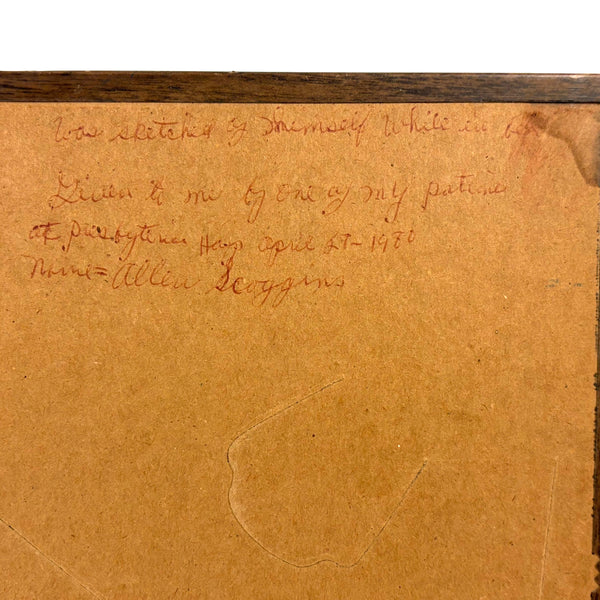 Was sketched of himself while in
Given to me by one of my patients
at Presbyterian Hosp April 27-1980
Name= Allen Scoggins